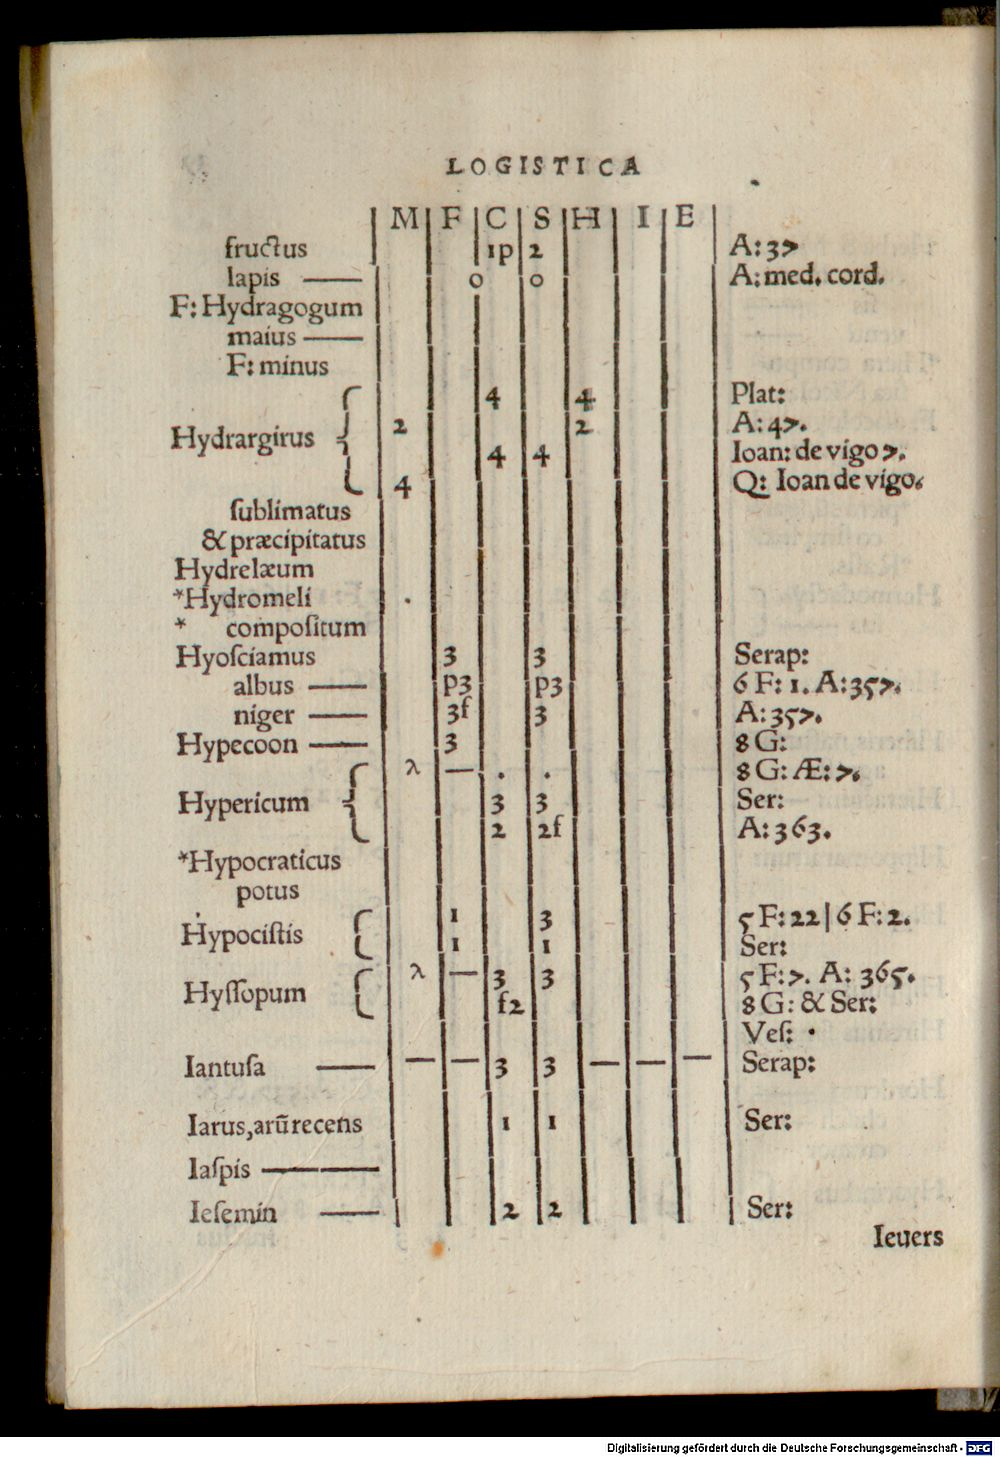 LOGISTICA
M | F | C | S | H | I | E
fructus 1p 2 A: 3>
lapis — 0 0 A: med. cord.
F: Hydragogum
maius —
F: minus
4 4 Plat:
2 2 A: 4>.
Hydrargirus
4 4 Ioan: de vigo >.
4 Q: Ioan de vigo.
ſublimatus
& præcipitatus
Hydrelæum
*Hydromeli
* compoſitum
Hyoſciamus 3 3 Serap:
albus — p3 p3 6 F: 1. A: 35>.
niger — 3f 3 A: 35>.
Hypecoon — 3 8 G:
λ — . . 8 G: Æ: >.
Hypericum 3 3 Ser:
2 2f A: 363.
*Hypocraticus
potus
1 3 5 F: 22 | 6 F: 2.
Hypociſtis
1 1 Ser:
λ — 3 3 5 F: >. A: 365.
Hyſſopum f2 8 G: & Ser:
Veſ: .
Iantuſa — — — 3 3 — — — Serap:
Iarus, arũ recens 1 1 Ser:
Iaſpis —
Ieſemin — 2 2 Ser:
Ieuers
Digitalisierung gefördert durch die Deutsche Forschungsgemeinschaft - DFG